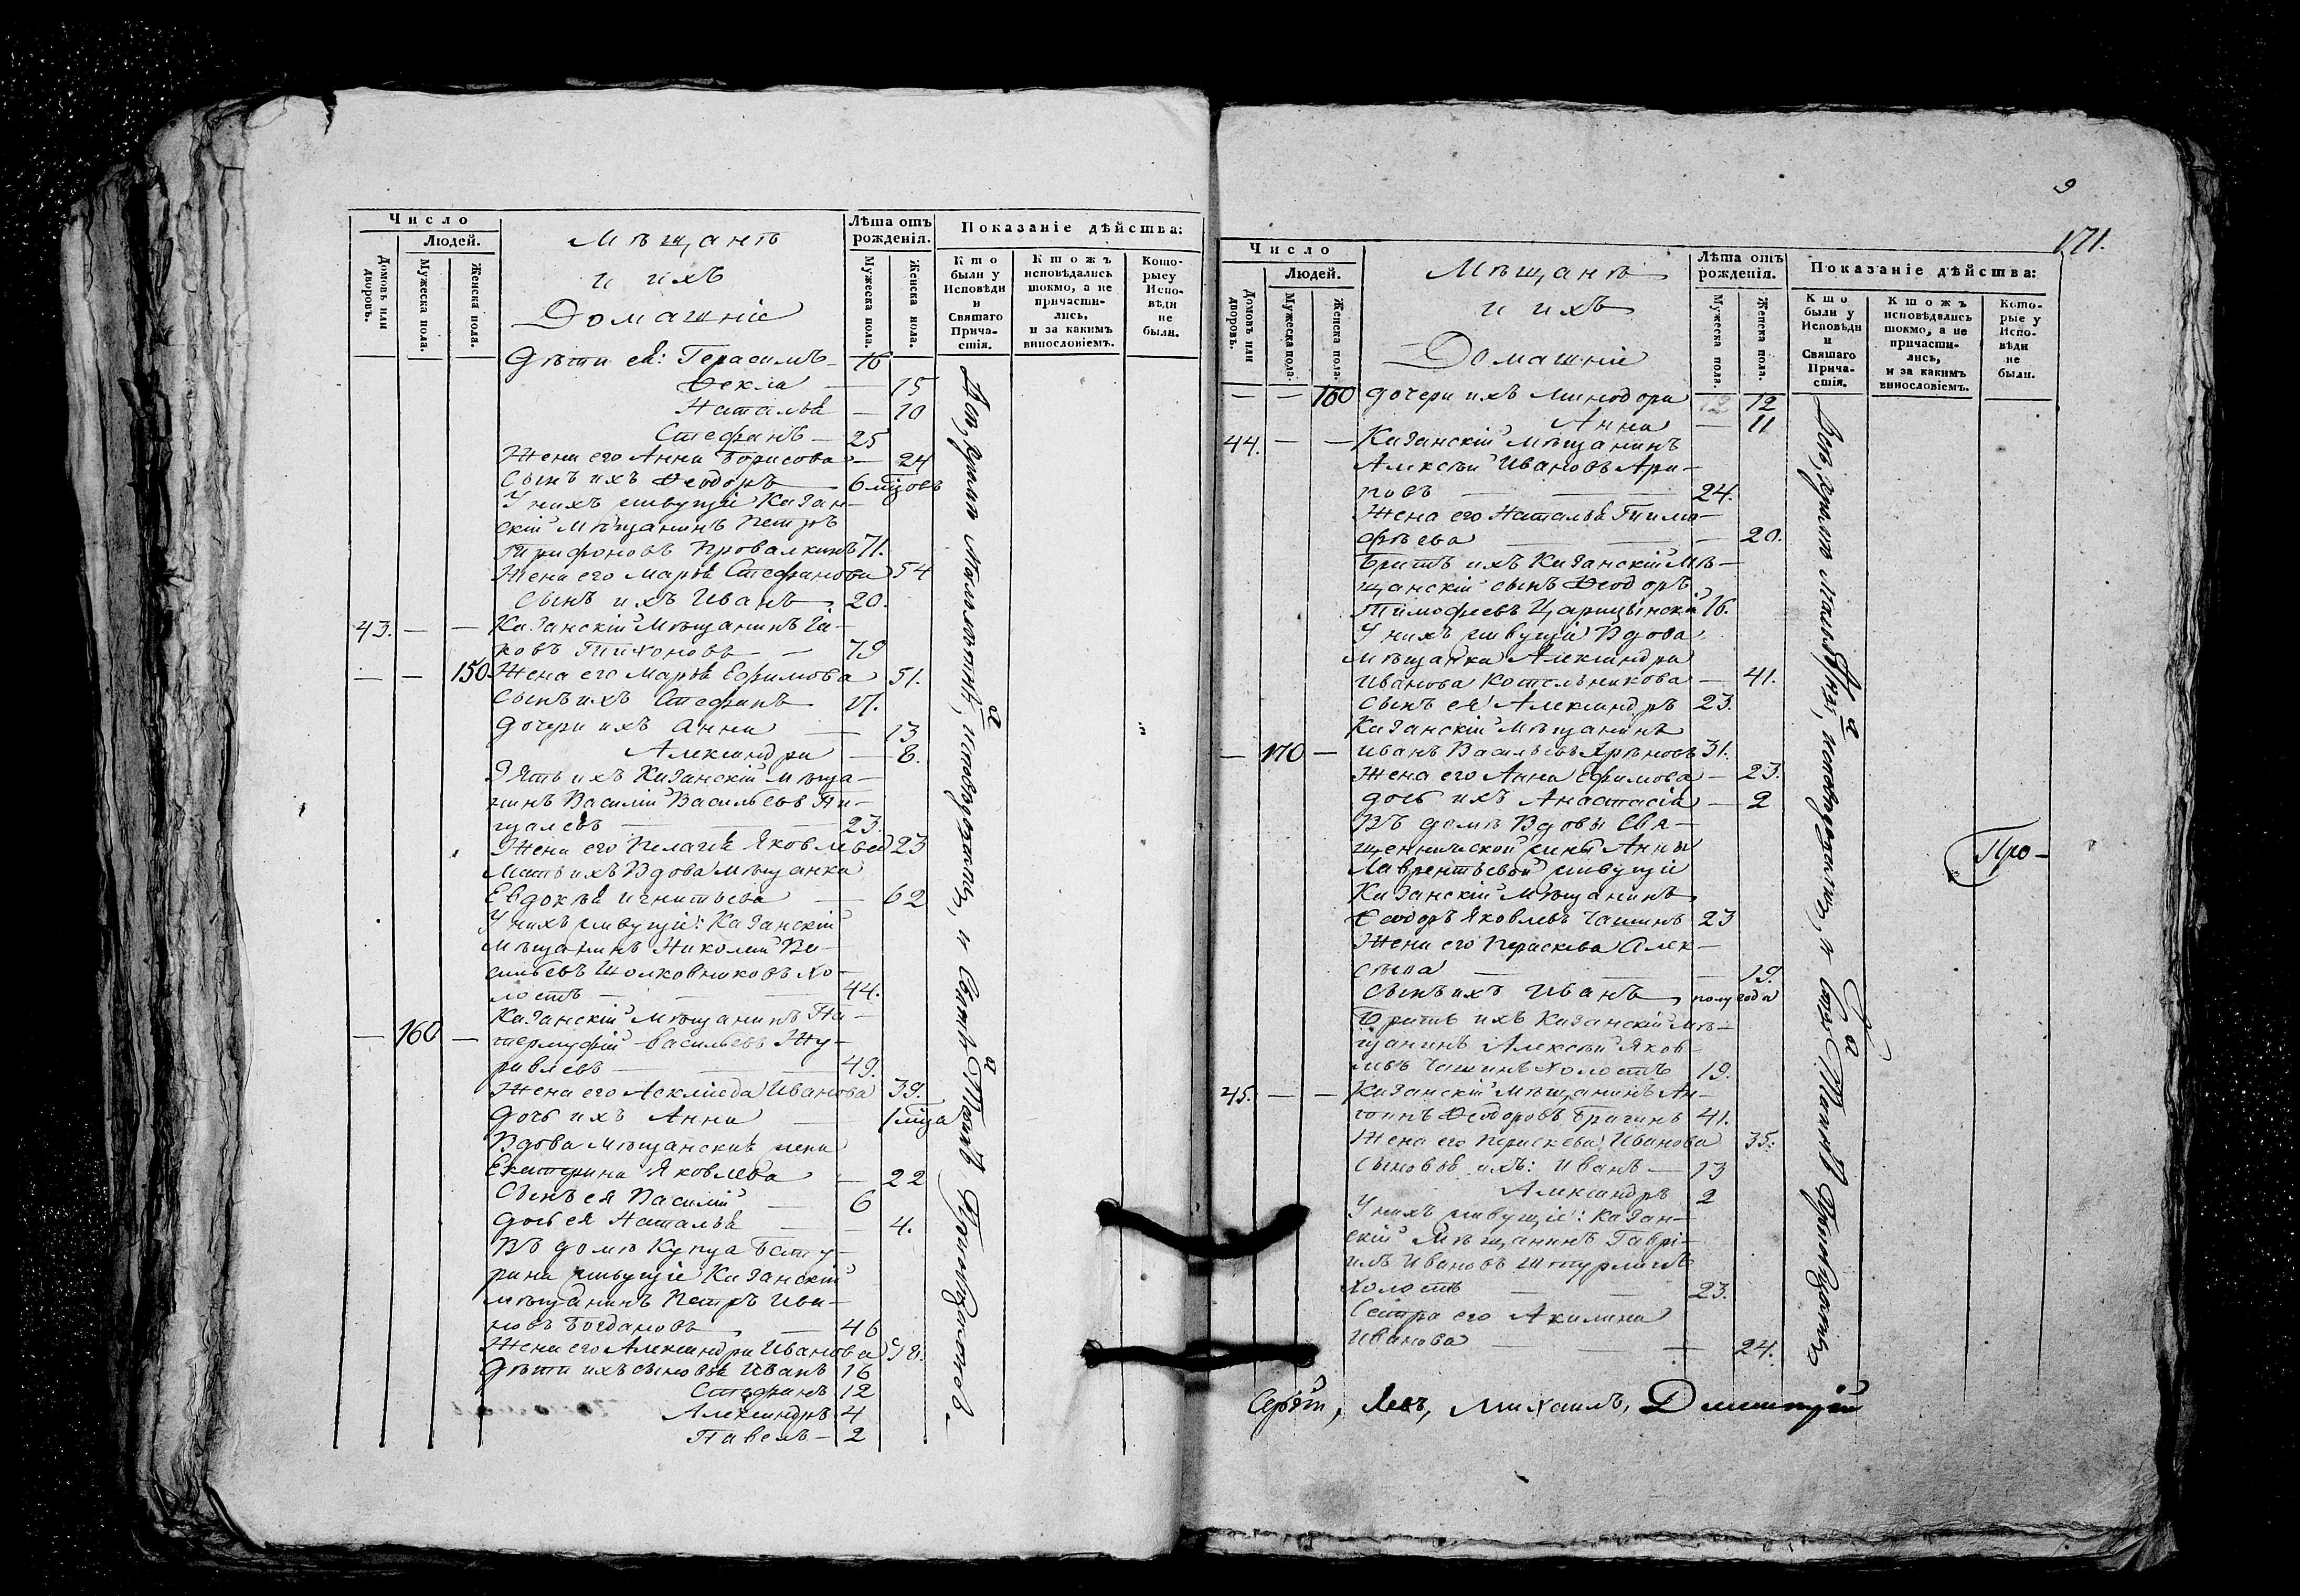 Число
Людей.
Домовъ или дворовъ.
Мужеска пола.
Женска пола.
Мѣщанѣ
и ихъ
Домашніе
Лѣта отъ рожденія.
Мужеска пола.
Женска пола.
Показаніе дѣйства:
Кто были у Исповѣди и Святаго Причастія.
Ктожъ исповѣдались токмо, а не причастились, и за какимъ винословіемъ.
Которые у Исповѣди не были.
Дѣти ея: Герасимъ 16
Ѳекла — 15
Наталья — 10
Стефанъ — 25
Жена его Анна Борисова — 24
Сынъ ихъ Ѳеодоръ 6 мцовъ
У нихъ живущіе Казан-
скій Мѣщанинъ Петръ
Трифоновъ Провалкинъ 71.
Жена его Марья Стефанова 54
Сынъ ихъ Иванъ 20.
43. — — Казанскій Мѣщанинъ Іа-
ковъ Тихоновъ — 79
— — 150 Жена его Марья Ефимова 51.
Сынъ ихъ Стефанъ 17.
Дочери ихъ Анна — 13
Александра — 8.
Зять ихъ Казанскій Мѣща-
нинъ Василій Васильевъ Пи-
щалевъ — 23.
Жена его Пелагія Яковлева 23
Мать ихъ Вдова Мѣщанка
Евдокья Игнатьева — 62
У нихъ живущіе: Казанскій
Мѣщанинъ Николай Ва-
сильевъ Шолковниковъ хо-
лостъ — 44.
Казанскій Мѣщанинъ Па-
— 160 — термуфій Васильевъ Жу-
равлевъ — 49.
Жена его Асклиеда Иванова 39.
Дочь ихъ Анна 1 мца
Вдова Мѣщанская жена
Екатерина Яковлева — 22
Сынъ ея Василій — 6
Дочь ея Наталья — 4.
Въ домѣ Купца Бату-
рина живущіе Казанскій
Мѣщанинъ Петръ Ива-
новъ Богдановъ — 46
Жена его Александра Иванова 38.
Дѣти ихъ сыновья Иванъ 16
Стефанъ 12
Александръ 4
Павелъ — 2
9
171.
Число
Людей.
Домовъ или дворовъ.
Мужеска пола.
Женска пола.
Мѣщанѣ
и ихъ
Домашніе
Лѣта отъ рожденія.
Мужеска пола.
Женска пола.
Показаніе дѣйства:
Кто были у Исповѣди и Святаго Причастія.
Ктожъ исповѣдались токмо, а не причастились, и за какимъ винословіемъ.
Которые у Исповѣди не были.
— — 160 Дочери ихъ Минодора 12
Анна — 11
44. — — Казанскій Мѣщанинъ
Алексѣй Ивановъ Ари-
повъ — 24.
Жена его Наталья Тимо-
фѣева — 20.
Братъ ихъ Казанскій Мѣ-
щанскій сынъ Ѳеодоръ
Тимофеевъ Царицынскій 16.
У нихъ живущіе Вдова
Мѣщанка Александра
Иванова Котельникова — 41.
Сынъ ея Александръ 23.
Казанскій Мѣщанинъ
— 170 — Иванъ Васильевъ Хрѣновъ 31.
Жена его Анна Ефимова — 23.
Дочь ихъ Анастасія — 2
Въ домѣ Вдовы Свя-
щеннической жены Анны
Лаврентьевой живущіе
Казанскій Мѣщанинъ
Ѳеодоръ Яковлевъ Чашинъ 23
Жена его Параскева Алек-
сѣева — 19.
Сынъ ихъ Иванъ полугода
Братъ ихъ Казанскій Мѣ-
щанинъ Алексѣй Яков-
левъ Чашинъ Холостъ 19.
45. — — Казанскій Мѣщанинъ Ан-
тонъ Ѳеодоровъ Брагинъ 41.
Жена его Параскева Иванова 35.
Сыновья ихъ: Иванъ — 13
Александръ 2
У нихъ живущіе: Казан-
скій Мѣщанинъ Гаврі-
илъ Ивановъ
Холостъ — 23.
Сестра его Акилина
Иванова — 24.
Про-
Сергій, Левъ, Михаилъ, Димитрій